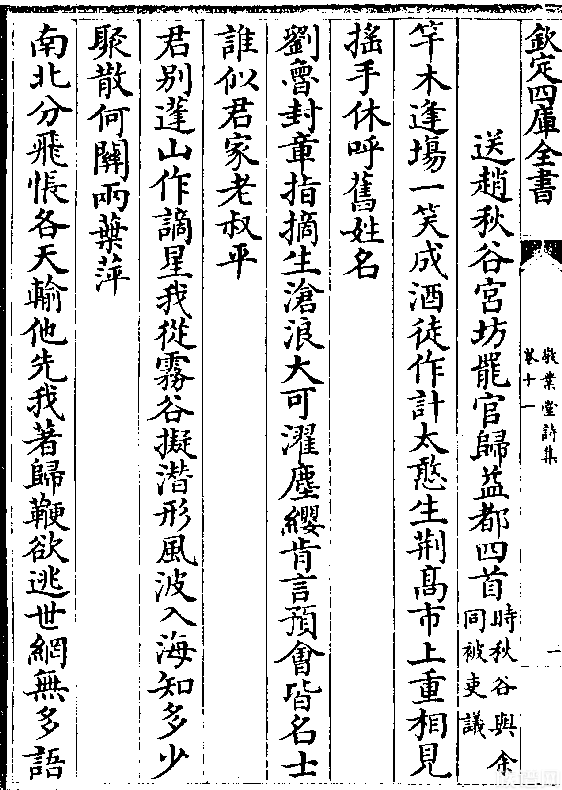 欽定四庫全書
敬業堂詩集
卷十一
一
送趙秋谷宮坊罷官歸益都四首時秋谷與余
同被吏議
竿木逢塲一笑成酒徒作計太憨生荆髙市上重相見
揺手休呼舊姓名
劉魯封章指摘生滄浪大可濯塵纓肯言預㑹皆名士
誰似君家老叔平
君别蓬山作謫星我從霧谷擬潜形風波入海知多少
聚散何闗兩葉萍
南北分飛悵各天輸他先我著歸鞭欲逃世網無多語